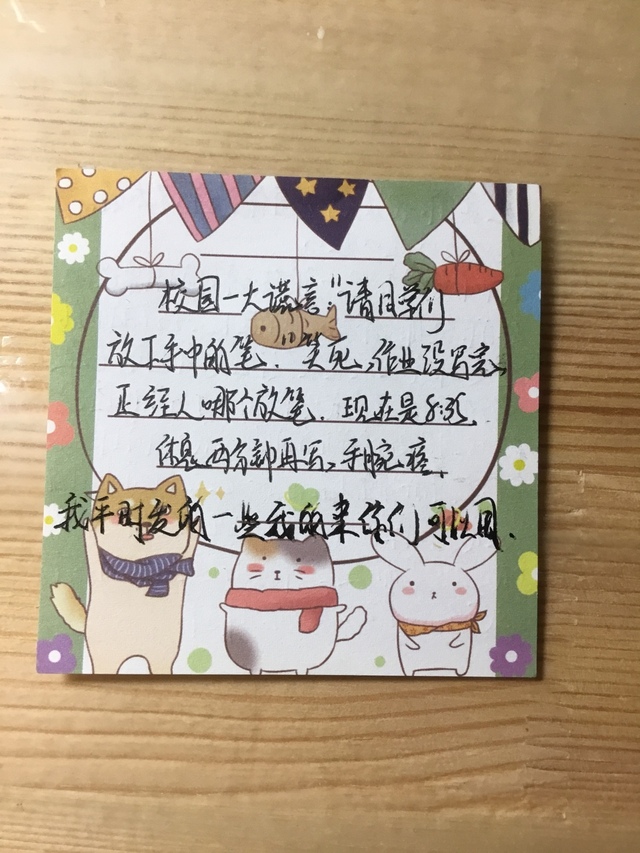 校园一大谎言:"请同学们
放下手中的笔,"笑死,作业没写完,
正经人哪个放笔,现在是8:
休息两分钟再写,手腕疼,
我平时发的一些我的来你们可以用,